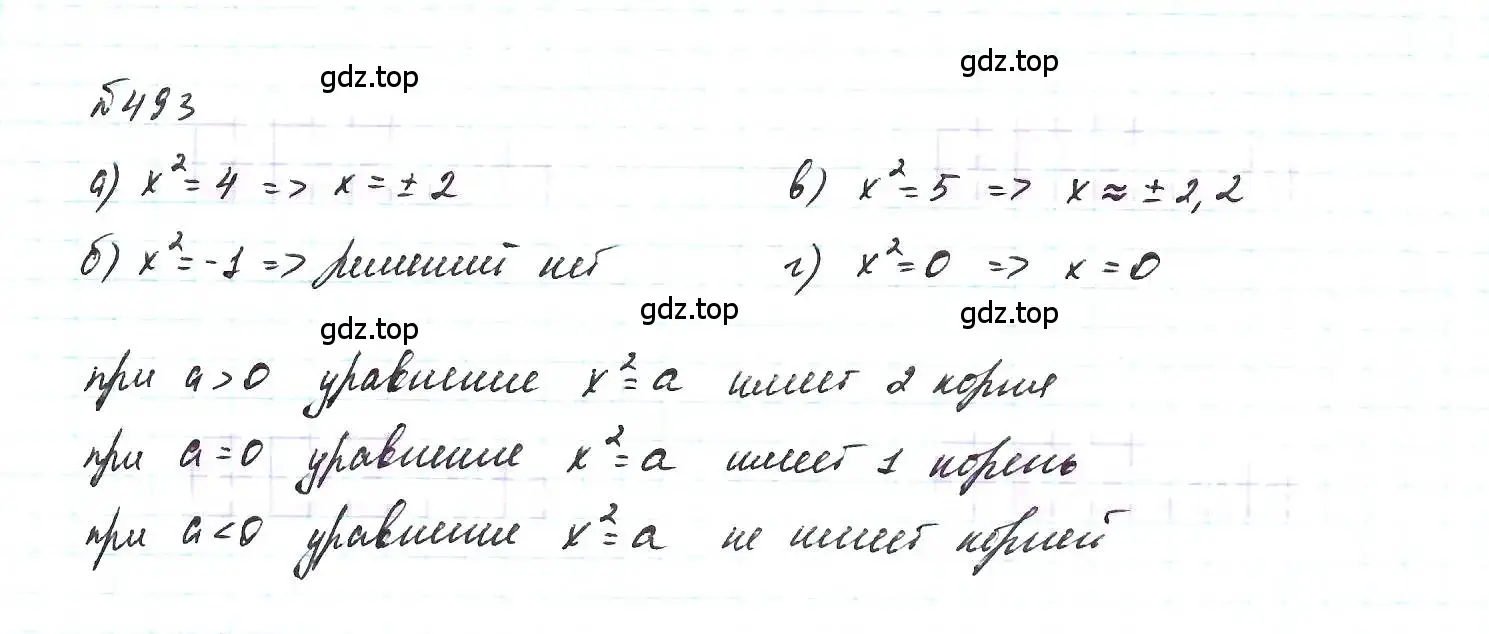 gdz.top
gdz.top
№493
а) x²=4 => x=±2
в) x²=5 => x≈±2,2
б) x²=-1 => решений нет
г) x²=0 => x=0
gdz.top
gdz.top
gdz.top
при a>0 уравнение x²=a имеет 2 корня
при a=0 уравнение x²=a имеет 1 корень
при a<0 уравнение x²=a не имеет корней